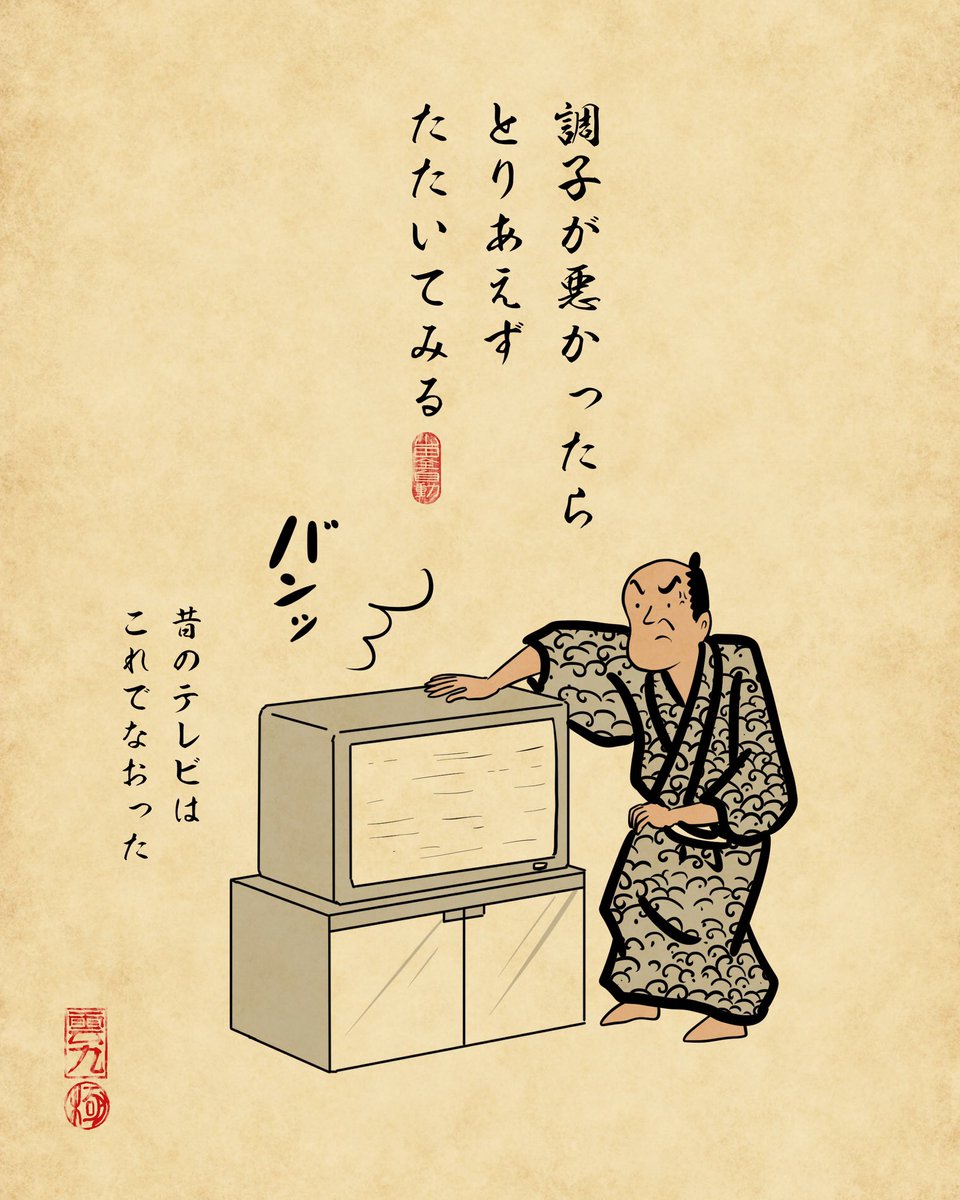 調子が悪かったら
とりあえず
たたいてみる
バンッ
昔のテレビは
これでなおった